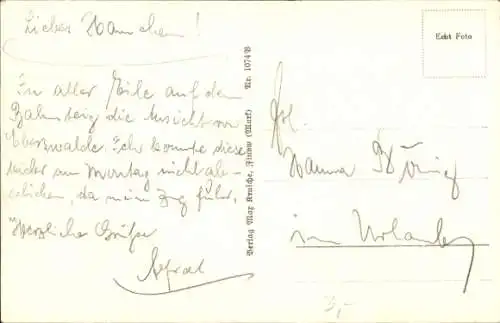 Liebes Hannchen!
In aller Eile auf dem
Bahnsteig die Ansicht von
Eberswalde. Ich konnte diese
leider am Montag nicht ab-
schicken, da mein Zug fuhr.
Herzliche Grüße
Alfred
Verlag Max Krutsche, Finow (Mark) Nr. 1074 B
Echt Foto
Frl.
Hanna
im Urlaub
3,-